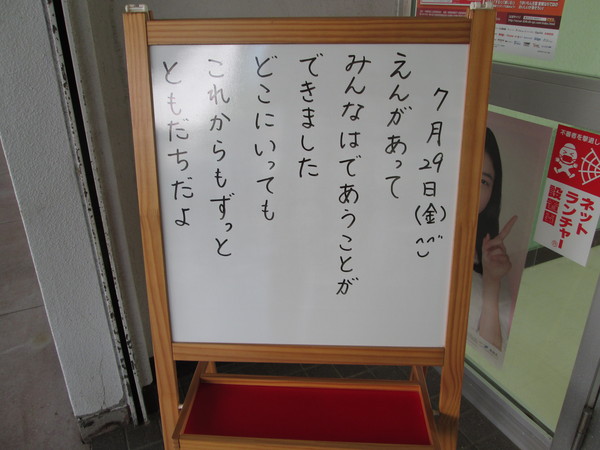 7月29日(金)^^
えんがあって
みんなはであうことが
できました
どこにいっても
これからもずっと
ともだちだよ
不審者を撃退し
ネット
ランチャー
設置園